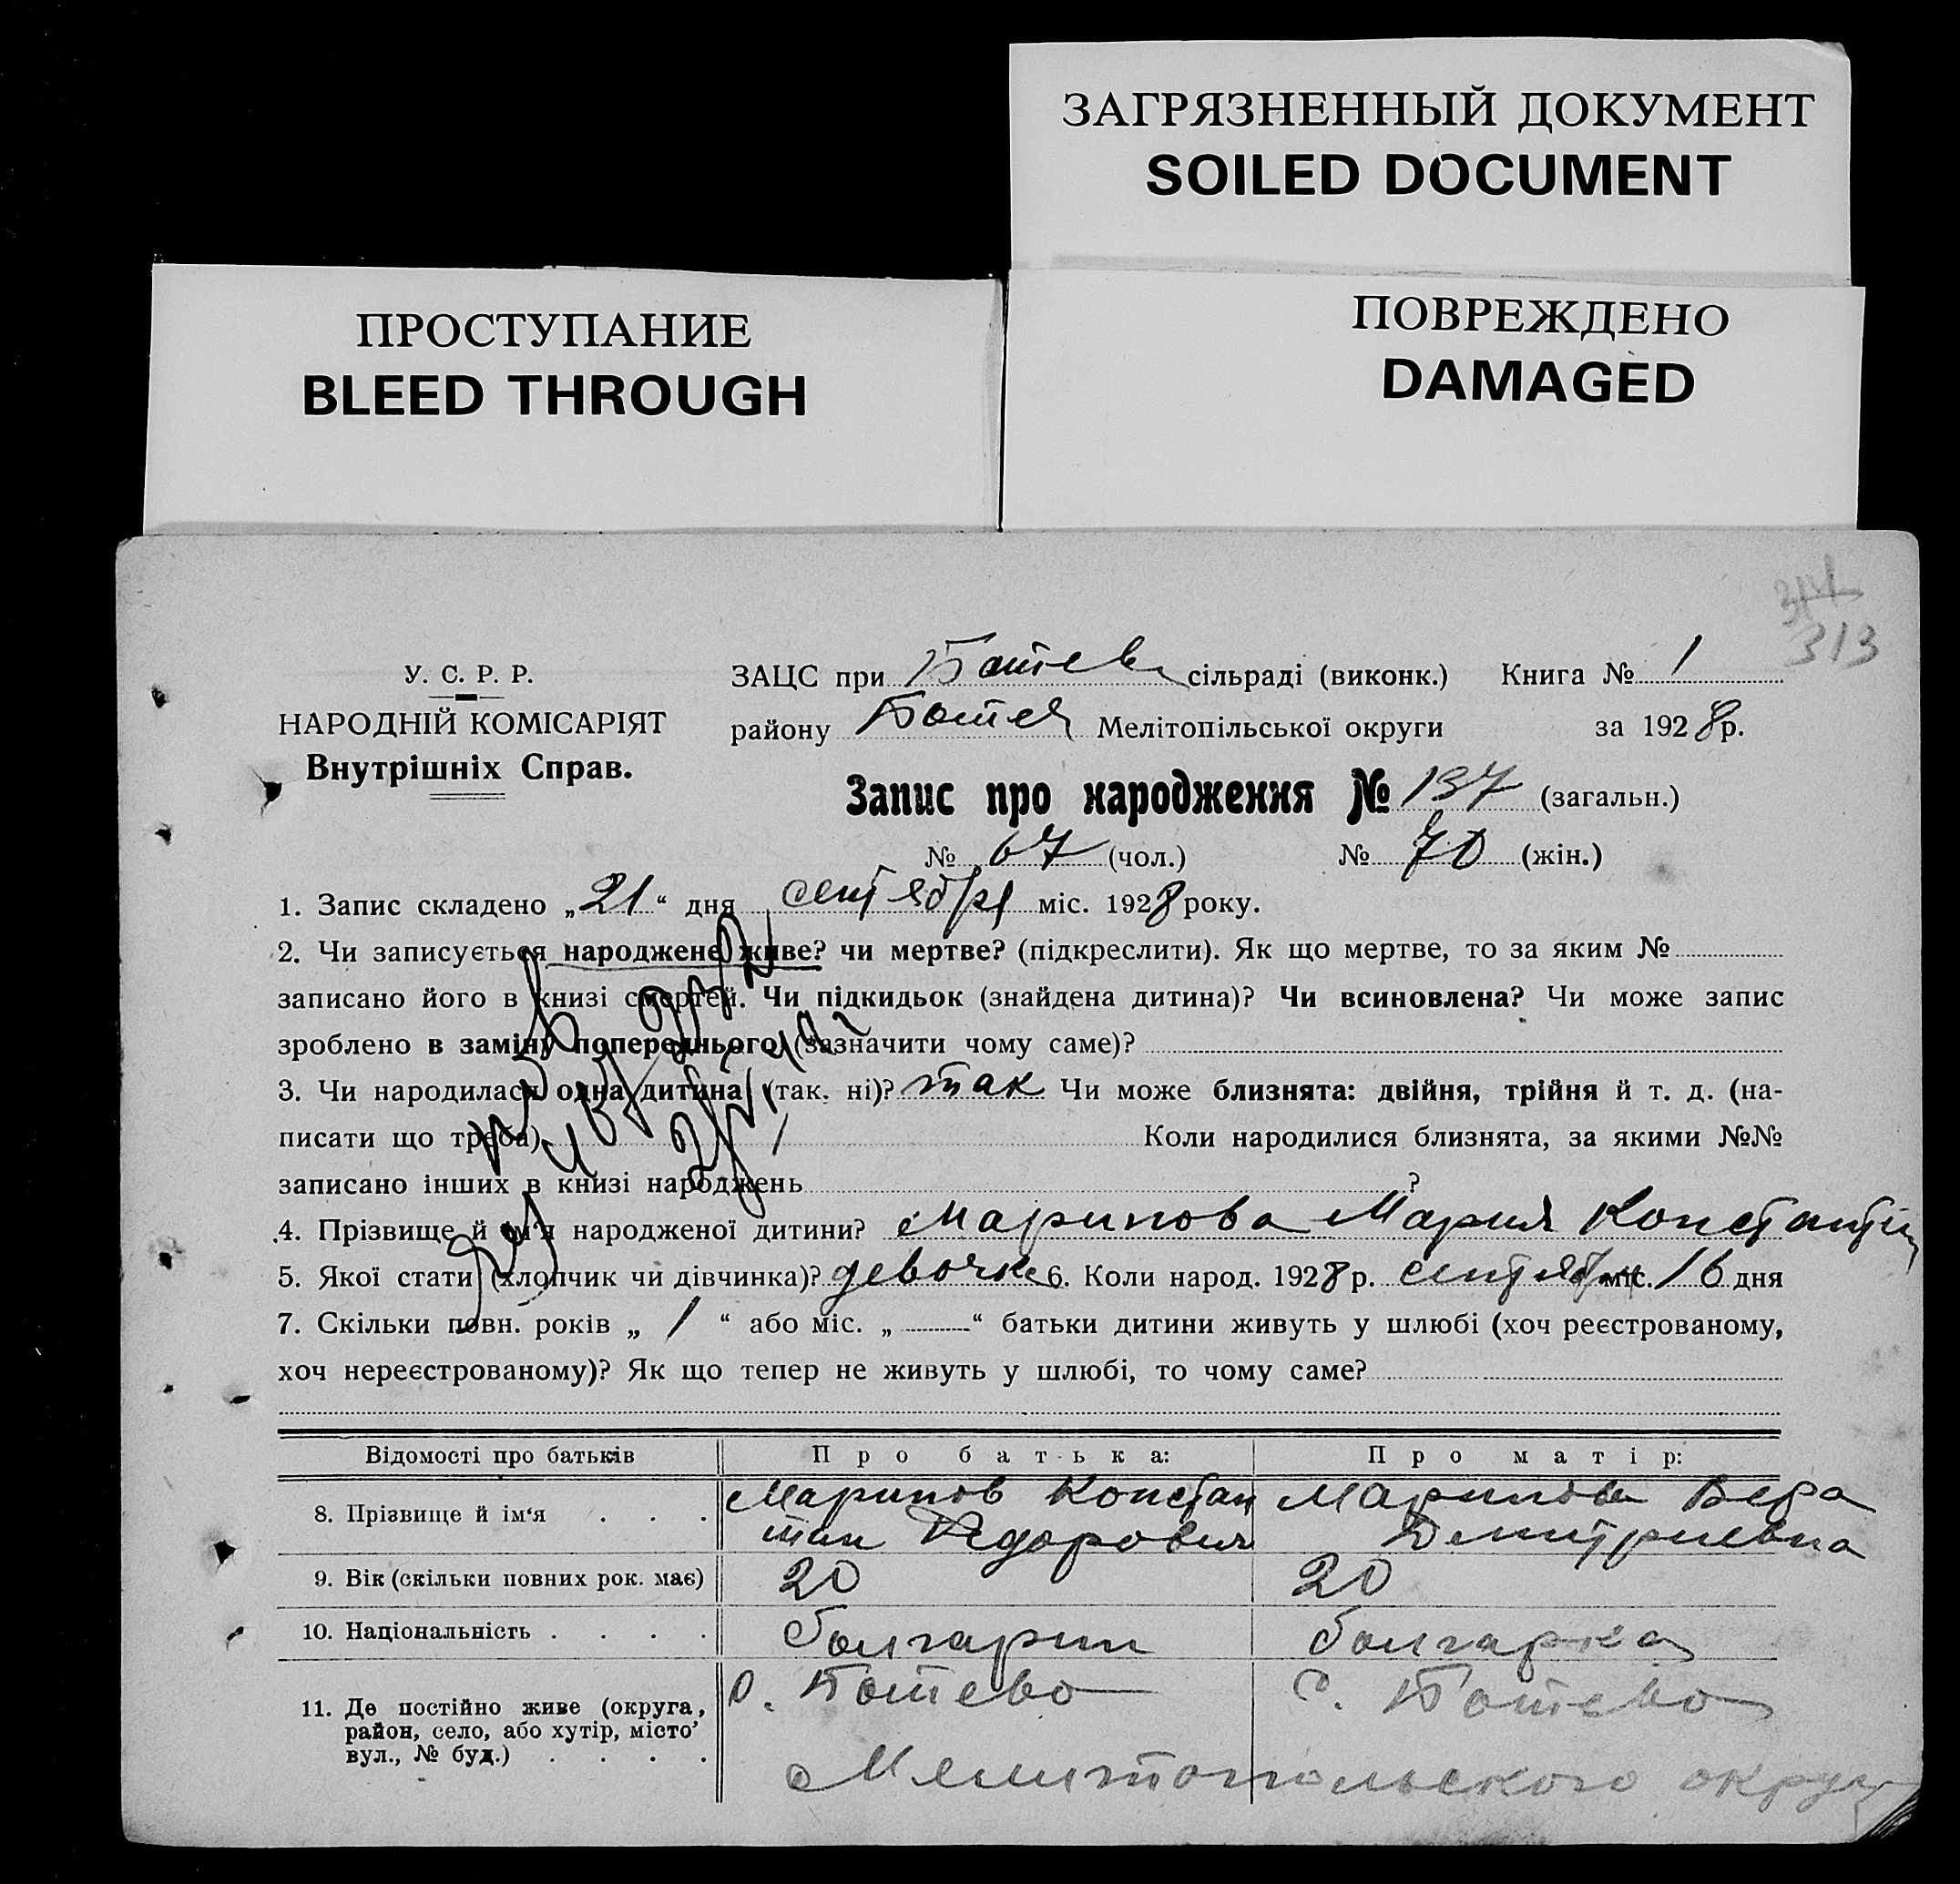 ЗАГРЯЗНЕННЫЙ ДОКУМЕНТ
SOILED DOCUMENT
ПРОСТУПАНИЕ
BLEED THROUGH
ПОВРЕЖДЕНО
DAMAGED
313
У. С. Р. Р.
НАРОДНІЙ КОМІСАРІЯТ
Внутрішніх Справ.
ЗАЦС при Ботев сільраді (виконк.) Книга № 1
району Ботев Мелітопільської округи за 1928 р.
Запис про народження № 137 (загальн.)
№ 67 (чол.) № 70 (жін.)
1. Запис складено „21“ дня сентября міс. 1928 року.
2. Чи записується народжене живе? чи мертве? (підкреслити). Як що мертве, то за яким №
записано його в книзі смертей. Чи підкидьок (знайдена дитина)? Чи всиновлена? Чи може запис
зроблено в заміну попереднього (зазначити чому саме)?
3. Чи народилася одна дитина (так, ні)? так Чи може близнята: двійня, трійня й т. д. (на-
писати що треба) Коли народилися близнята, за якими №№
записано інших в книзі народжень ?
4. Прізвище й ім'я народженої дитини? Маринова Мария Константин
5. Якої стати (хлопчик чи дівчинка)? девочка 6. Коли народ. 1928 р. сентября міс. 16 дня
7. Скільки повн. років „ 1 “ або міс. „ — “ батьки дитини живуть у шлюбі (хоч реєстрованому,
хоч нереєстрованому)? Як що тепер не живуть у шлюбі, то чому саме?
Відомості про батьків Про батька: Про матір:
8. Прізвище й ім'я . . . Маринов Констан Маринова Вера
тин Федорович Дмитриевна
9. Вік (скільки повних рок. має) 20 20
10. Національність . . . . болгарин болгарка
11. Де постійно живе (округа, с. Ботево с. Ботево
район, село, або хутір, місто'
вул., № буд.) . . . . Мелитопольского округ